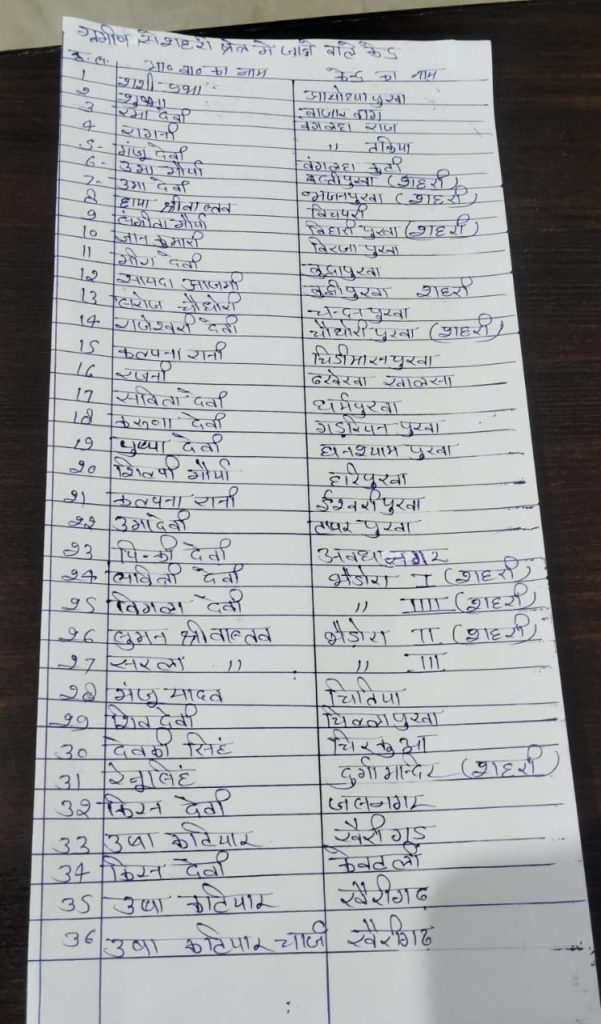 ग्रामीण से शहरी क्षेत्र मे जाने वाले केन्द्र
क्र.सं. आ० बा० का नाम केन्द्र का नाम
1 शशी प्रभा अयोध्या पुरवा
2 सुषमा बाजार बाग
3 रमा देवी बंगलहा राज
4 रागनी " तकिया
5- मंजू देवी बंगलहा कुटी
6- उमा मौर्या बस्तीपुरवा (शहरी)
7- उमा देवी भजनपुरवा (शहरी)
8 छाया श्रीवास्तव
9 संगीता मौर्या बिहारी पुरवा (शहरी)
10 जान कुमारी बिरजा पुरवा
11 मीरा देवी बुद्धापुरवा
12 सायदा आजमी शहरी
13 सरोज चौधरी चन्दन पुरवा
14 राजेश्वरी देवी चौधरी पुरवा (शहरी)
15 कल्पना रानी चिडीमारन पुरवा
16 रजनी ढखेरवा खालसा
17 सविता देवी धर्मपुरवा
18 करुणा देवी गड़रियन पुरवा
19 पुष्पा देवी घनश्याम पुरवा
20 शिवपी मौर्या हरिपुरवा
21 कल्पना रानी ईश्वरी पुरवा
22 उमादेवी पुरवा
23 पिन्की देवी अवधनगर
24 सावित्री देवी भैडोरा I (शहरी)
25 विमला देवी " IIII (शहरी)
26 सुमन श्रीवास्तव भैड़ोरा II (शहरी)
27 सरला " " III
28 मंजू यादव चितिया
29 शिव देवी पुरवा
30 देवकी सिंह चिरकुआ
31 रेनू सिंह दुर्गा मन्दिर (शहरी)
32 किरन देवी जलनगर
33 उषा कटियार खैरीगढ़
34 किरन देवी केवटली
35 उषा कटियार खैरीगढ़
36 उषा कटियार चार्ज खैरीगढ़